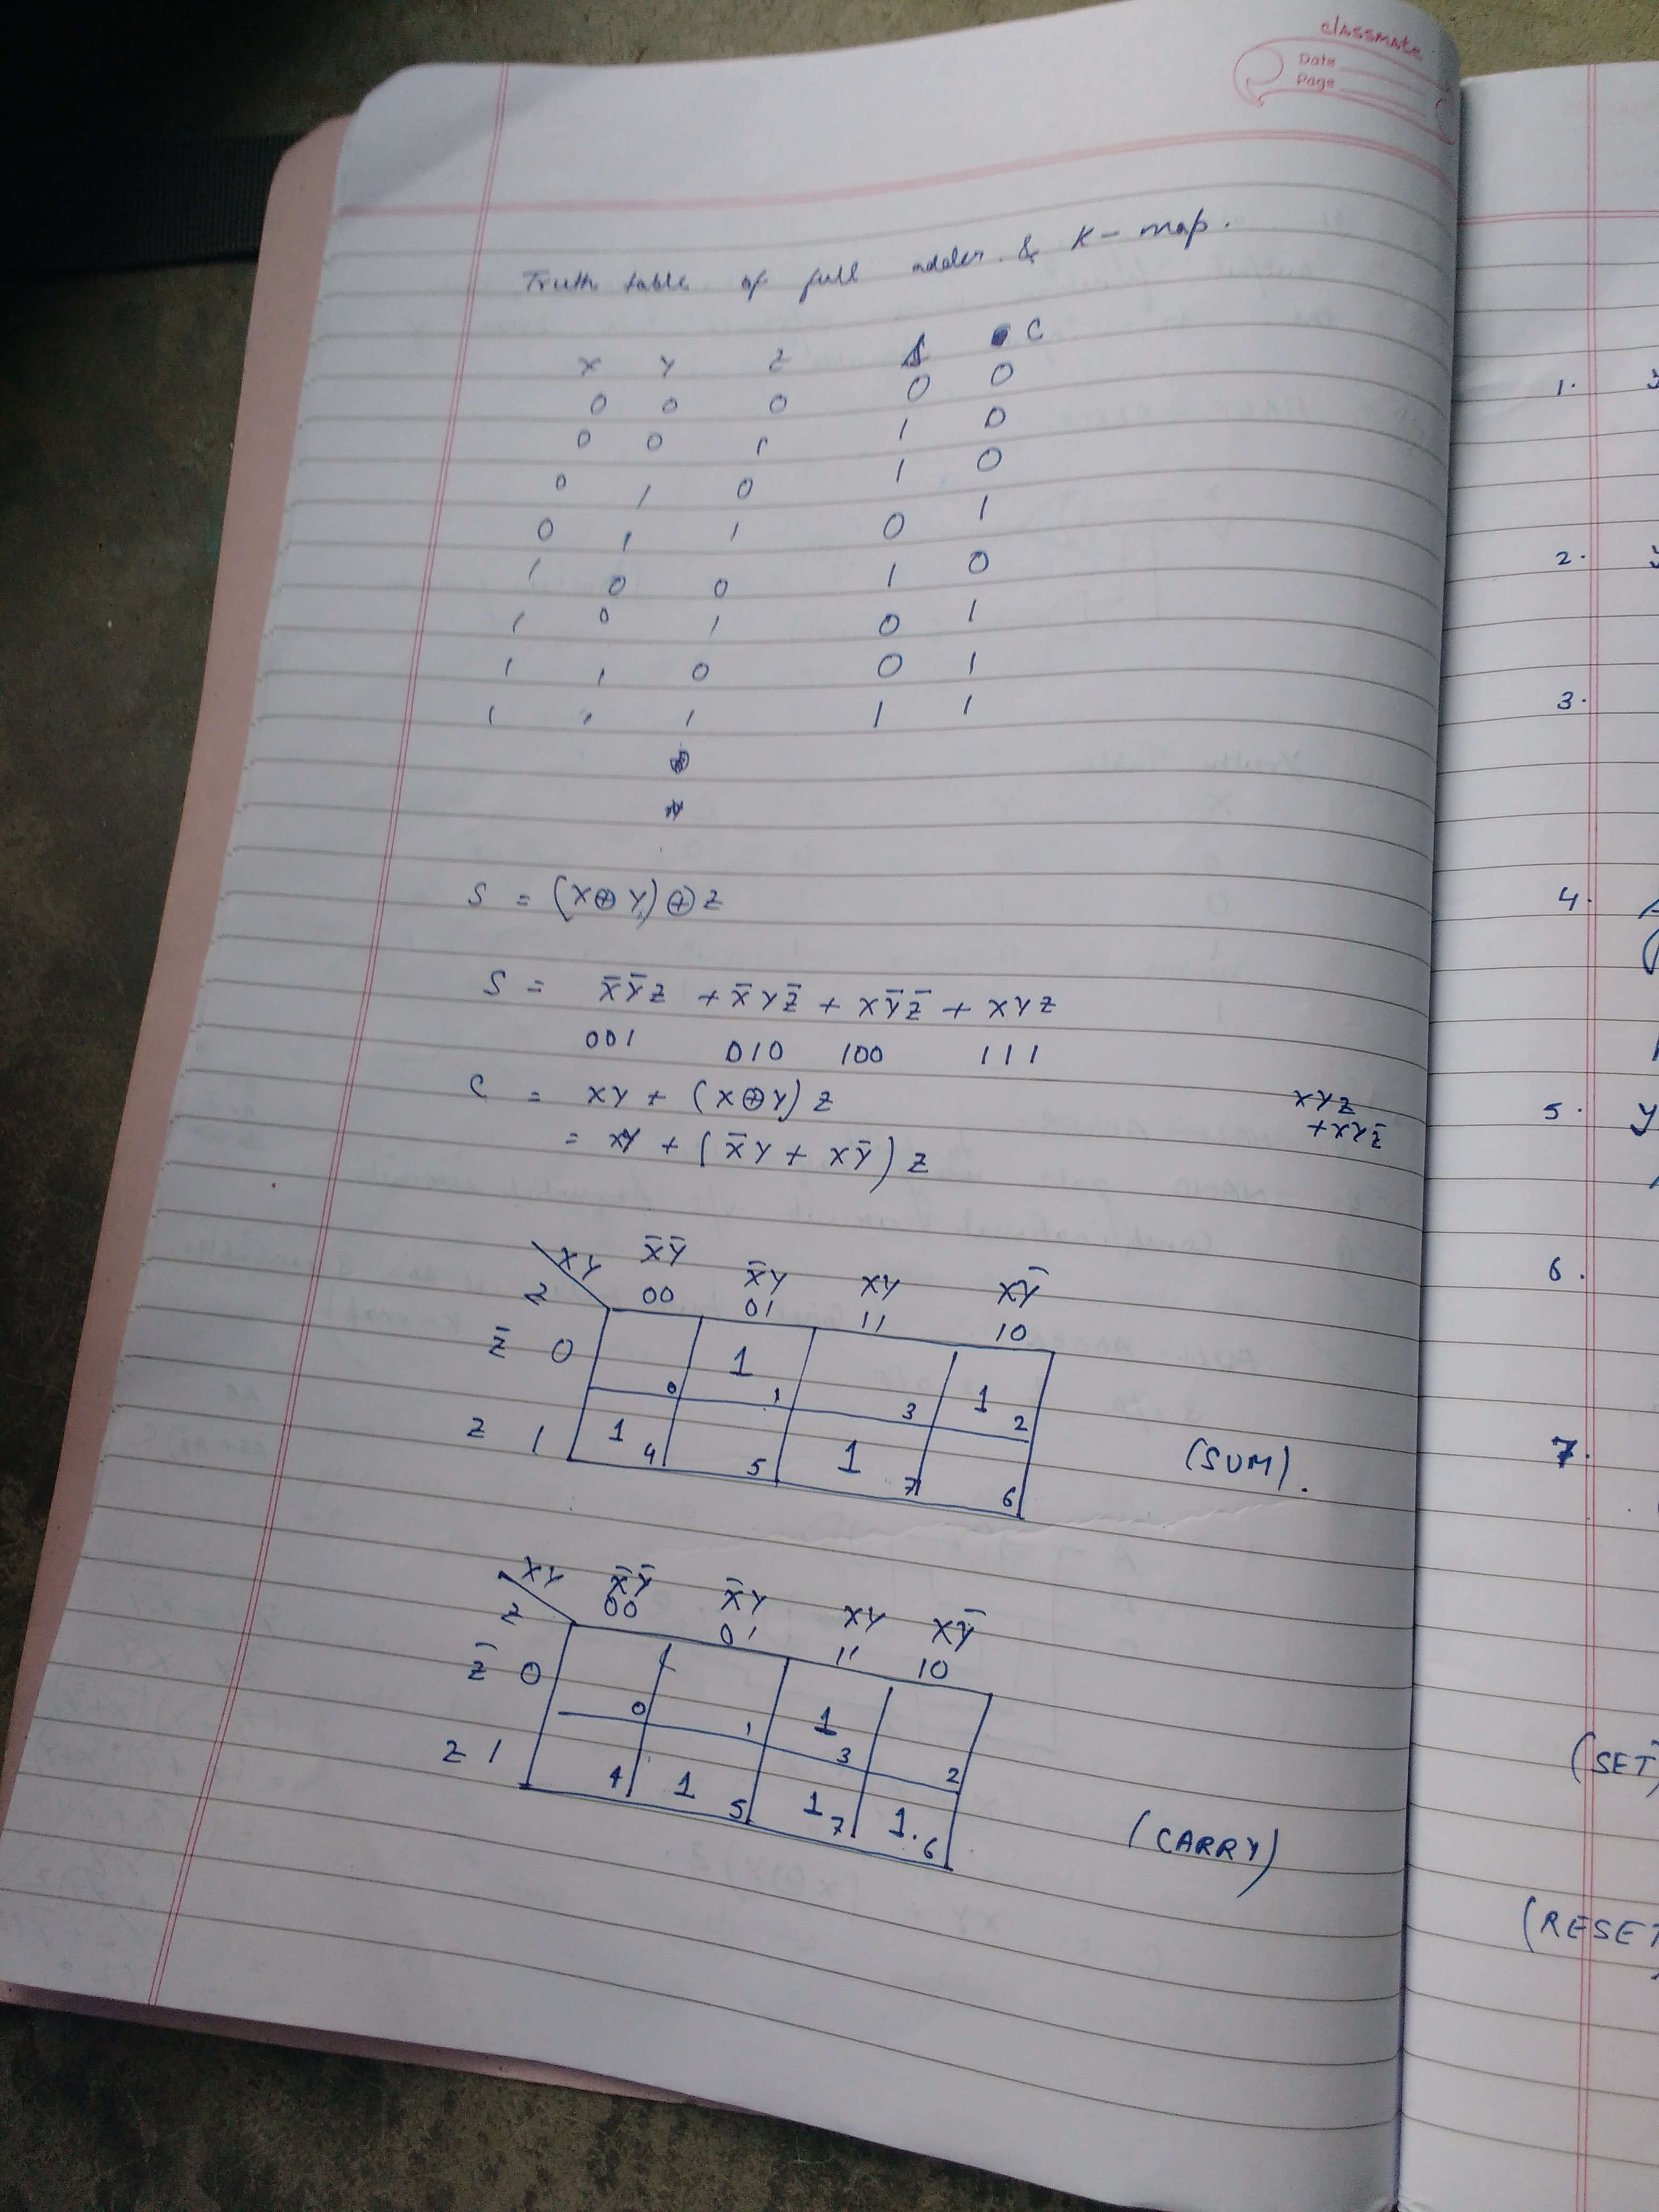 classmate
Date
Page
Truth table of full adder & K-map.
X Y Z S C
0 0 0 0 0
0 0 1 1 0
0 1 0 1 0
0 1 1 0 1
1 0 0 1 0
1 0 1 0 1
1 1 0 0 1
1 1 1 1 1
S = (X⊕Y)⊕Z
S = X̄ȲZ + X̄YZ̄ + XȲZ̄ + XYZ
001 010 100 111
C = XY + (X⊕Y) Z
= XY + (X̄Y + XȲ) Z
XYZ
+XYZ̄
XY X̄Ȳ X̄Y XY XȲ
Z 00 01 11 10
Z̄ 0 1 1
0 1 3 2
Z 1 1 1
4 5 7 6
(SUM).
XY X̄Ȳ X̄Y XY XȲ
Z 00 01 11 10
Z̄ 0 1
0 1 3 2
Z 1 1 1 1.
4 5 7 6
(CARRY)
1.
2.
3.
4.
5. y
6.
7.
(SET)
(RESET